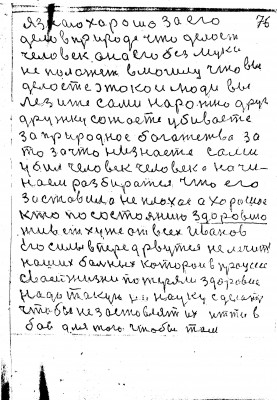 я знаю хорошо за его 76
дело в природе что делает
человек она его без муки
не положет в могилу что вы
делаете это кой люди вы
лезите сами нарожно друг
дружку сожаете убиваете
за природное богатства за
то за что незнаете сами
убил человек человека начи-
наем разбиратся что его
заставило не плохае а хорошае
кто по состоянию здоровшо
живет хуже от всех Иванов
его силы вперед рвутся не лечить
наших болных которои в процессе
своей жизни потеряли здоровие
надо такую науку сделать
чтобы не заставлят их итти в
бой для того чтобы там